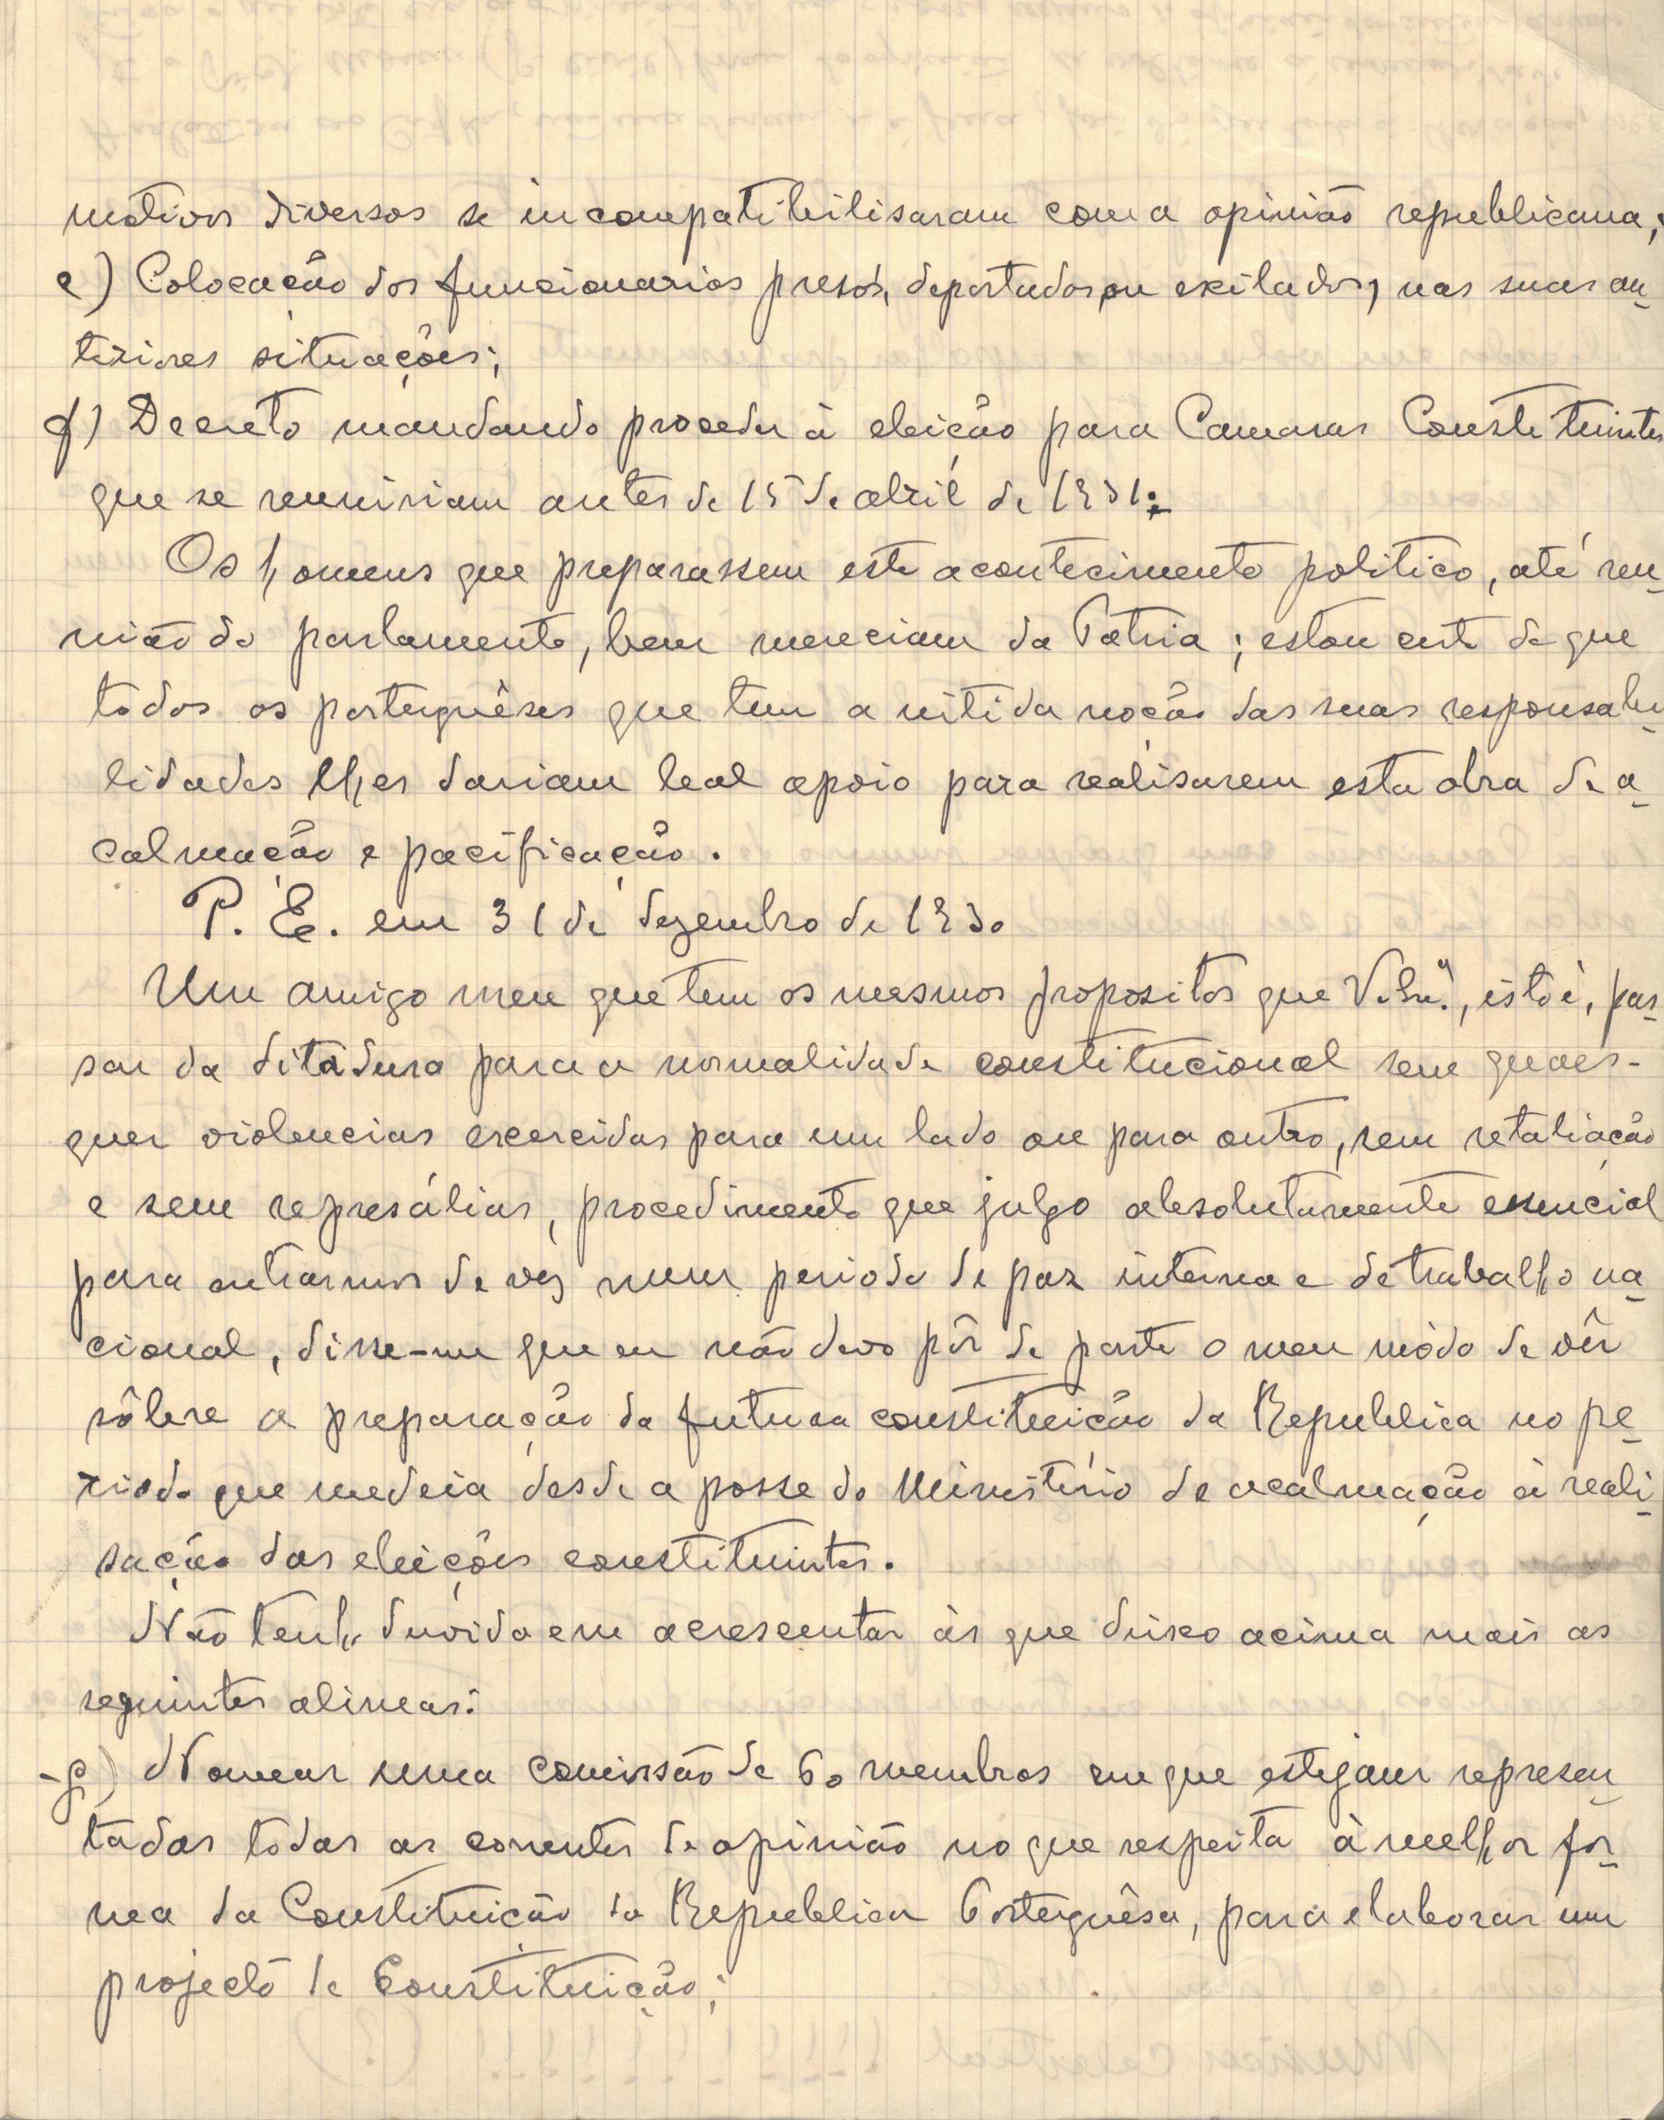 motivos diversos se incompatibilisaram com a opinião republicana;
e) Colocação dos funcionarios presos, deportados, ou exilados, nas suas an-
teriores situações;
f) Decreto mandando proceder à eleição para Camaras Constetuintes
que se reuniriam antes de 15 de abril de 1931:
Os homens que preparassem este acontecimento politico, até reu-
nião do parlamento, bem mereciam da Patria; estou certo de que
todos os portuguêses que tem a nitida noção das suas responsabi-
lidades lhes dariam leal apoio para realisarem esta obra de a-
calmação e pacificação.
P. E. em 31 de dezembro de 1930
Um amigo meu que tem os mesmos propositos que, isto é, pas-
sar da ditadura para a normalidade constitucional sem quaes-
quer violencias exercidas para um lado ou para outro, sem retaliação
e sem represálias, procedimento que julgo absolutamente essencial
para entrarmos de vez num periodo de paz interna e de trabalho na-
cional, disse-me que eu não devo pôr de parte o meu módo de vêr
sôbre a preparação da futura constituição da Republica no pe-
riodo que medeia desde a posse do Ministério de acalmação á reali-
sação das eleições constituintes.
Não tenho duvida em acrescentar ás que deixo acima mais as
seguintes alineas:
-g) Nomear uma comissão de 60 membros em que estejam represen-
tadas todas as correntes de opinião no que respeita à melhor for-
ma da Constituição da Republica Portuguêsa, para elaborar um
projecto de Constituição;